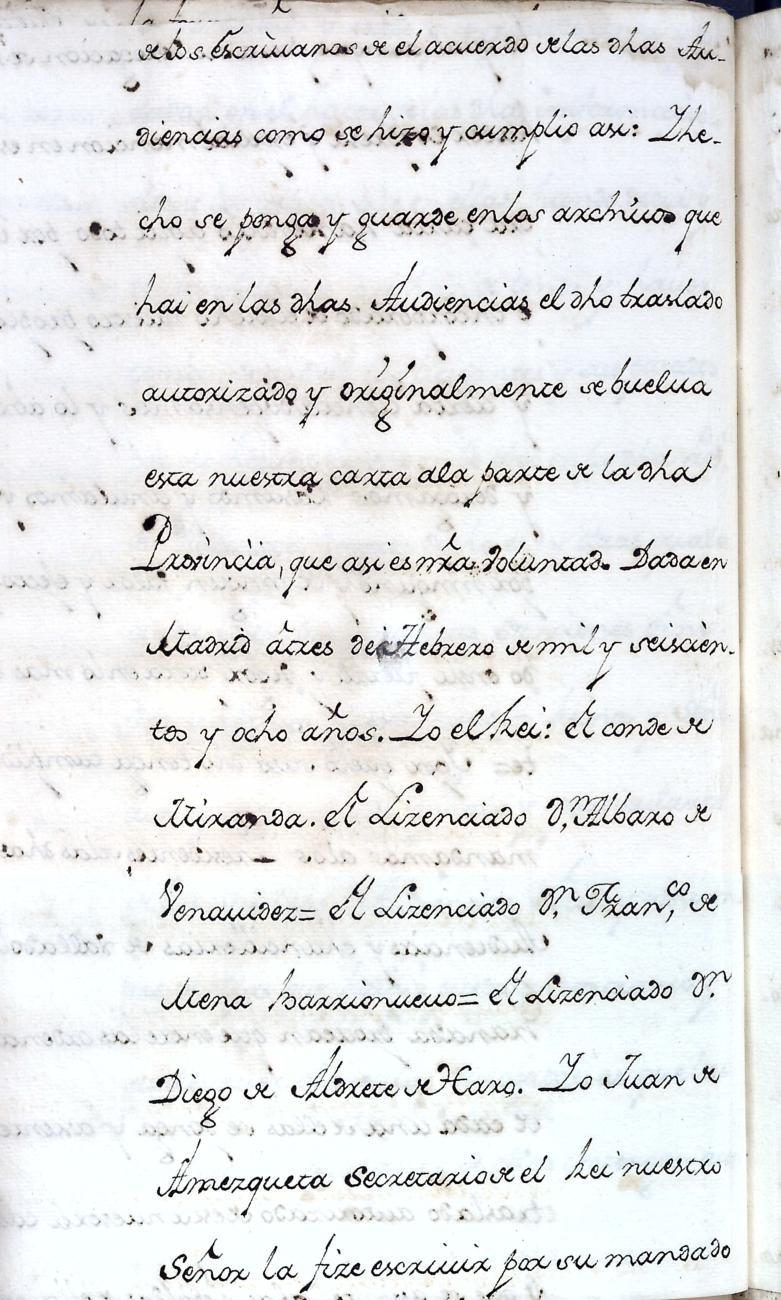 de los escriuanos de el acuerdo de las dhas Au-
diencias como se hizo y cumplio asi: Yhe-
cho se ponga y guarde enlos archiuos que
hai en las dhas. Audiencias el dho traslado
autorizado y originalmente se buelua
esta nuestra carta ala parte de la dha
Prouincia, que asi es nrã voluntad. Dada en
Madrid à tres de Hebrero de mil y seiscien-
tos y ocho años. Yo el Rei: el conde de
Miranda. el Lizenciado D.n Albaro de
Venauidez= el Lizenciado D.n Fran,co de
Mena barrionueuo= el Lizenciado D.n
Diego de Aldrete de Haro. Yo Juan de
Amezqueta Secretario de el Rei nuestro
Señor la fize escriuir por su mandado